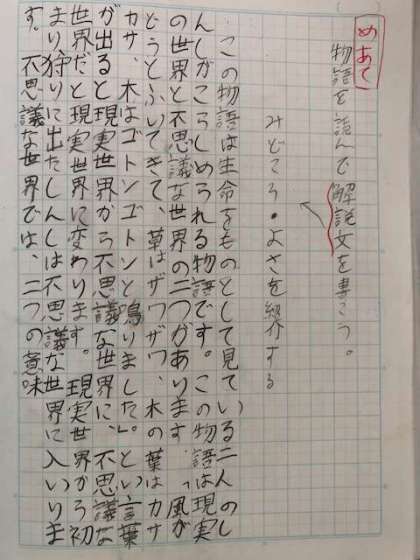 めあて
物語を読んで解説文を書こう。
みどころ・よさを紹介する
この物語は生命をものとして見ている二人のし
んしがこらしめられる物語です。この物語は現実
の世界と不思議な世界の二つがあります。「風が
どうとふいてきて、草はザワザワ、木の葉はカサ
カサ、木はゴトンゴトンと鳴りました」という言葉
が出ると現実世界から不思議な世界に、不思議な
世界だと現実世界に変わります。現実世界から初
まり狩りに出たしんしは不思議な世界に入いりま
す。不思議な世界では、二つの意味